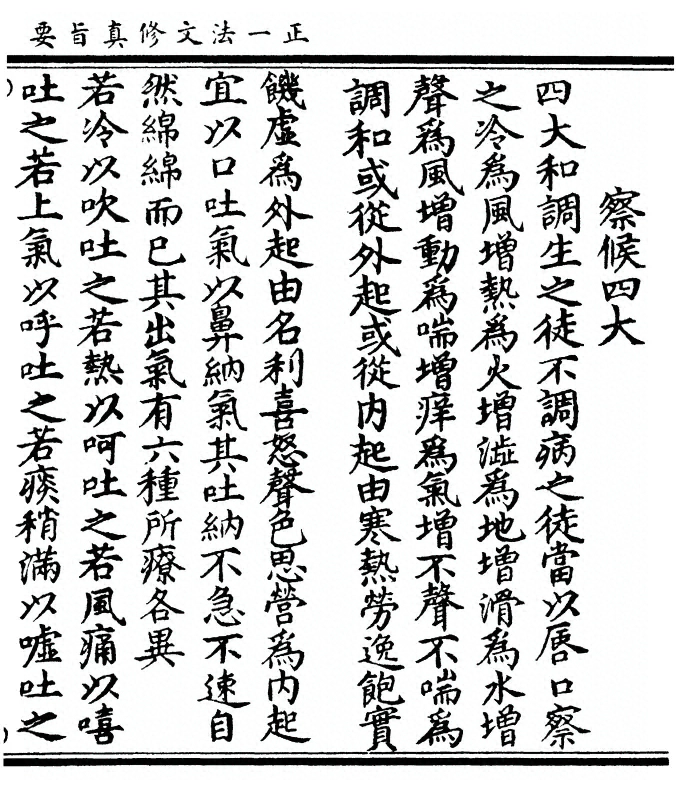 正一法文修真旨要
察候四大
四大和調生之徒不調病之徒當以唇口察
之冷為風增熱為火增澁為地增滑為水增
聲為風增動為喘增痒為氣增不聲不喘為
調和或從外起或從內起由寒熱勞逸飽實
饑虛為外起由名利喜怒聲色思營為內起
宜以口吐氣以鼻納氣其吐納不急不速自
然綿綿而已其出氣有六種所療各異
若冷以吹吐之若熱以呵吐之若風痛以嘻
吐之若上氣以呼吐之若痰稍滿以噓吐之